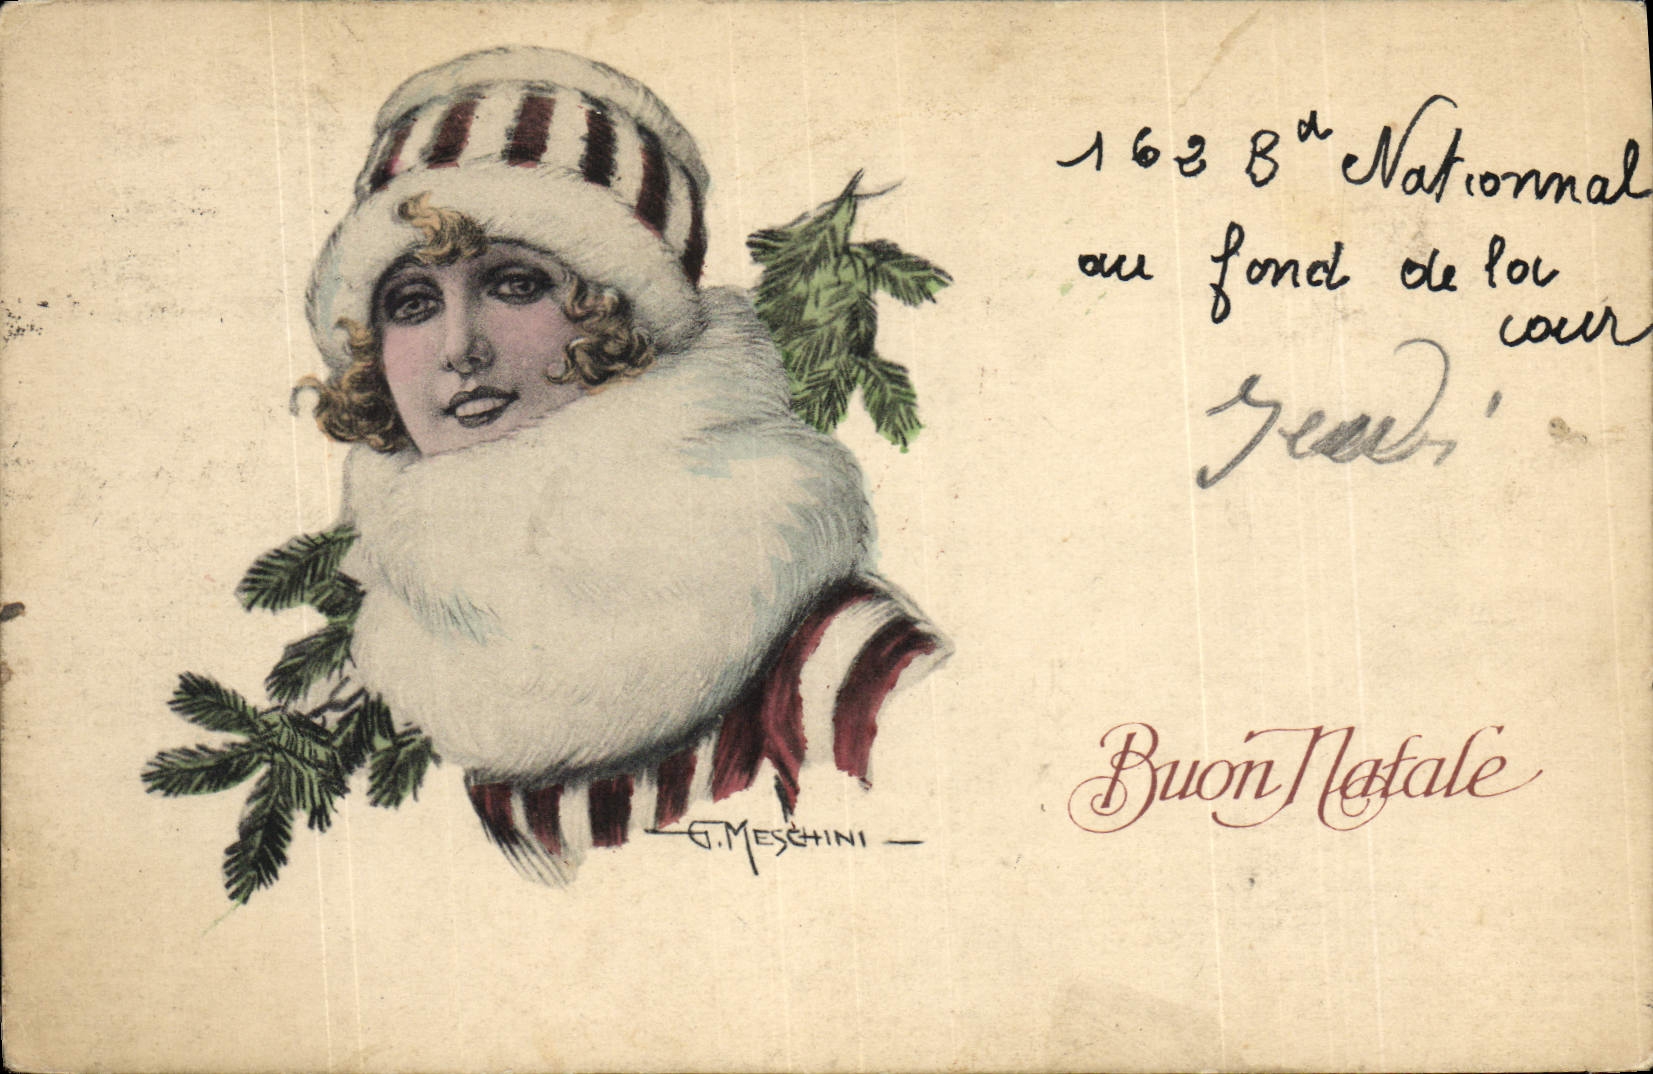 162 Bd Nationnal
au fond de la
cour
Buon Natale
G. MESCHINI